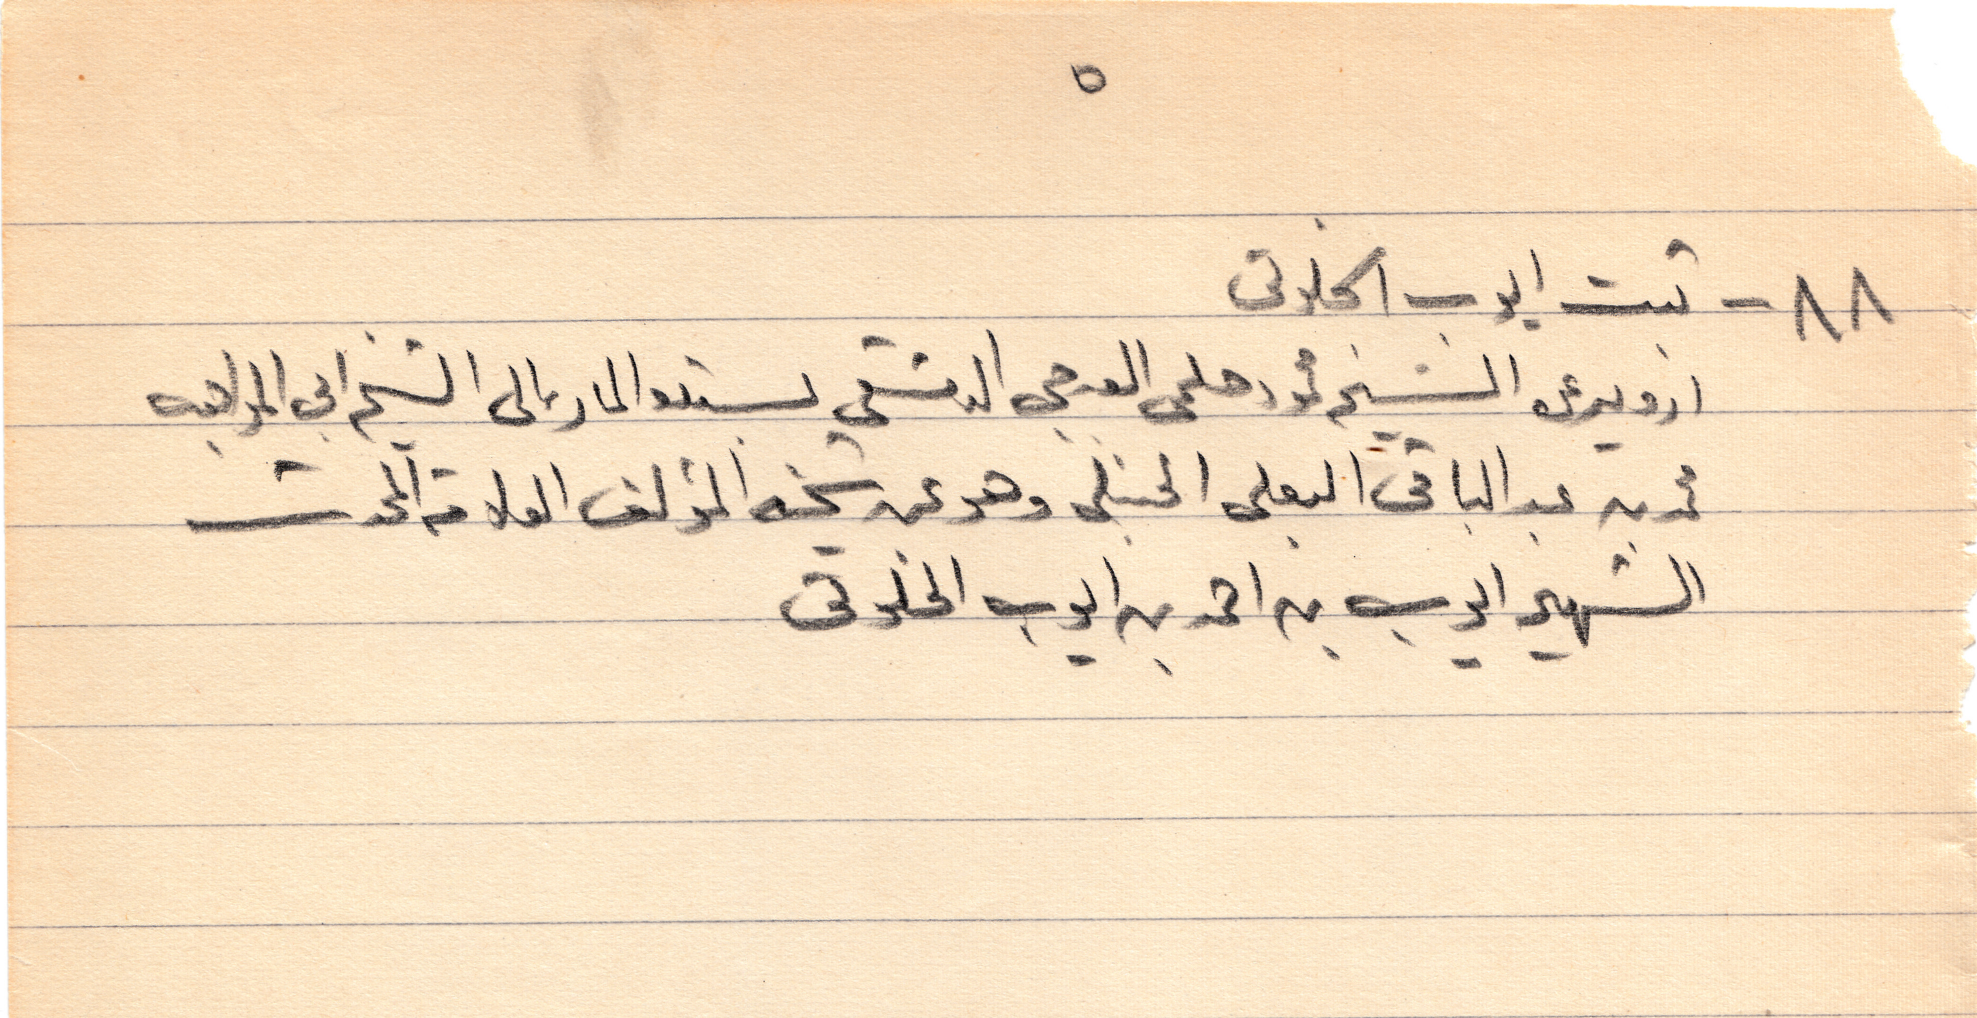 ٥
٨٨ - ثبت ايوب الخلوتى
ارويه عن الشيخ محمود حلمى العرجى الدمشقى بسنده المار الى الشيخ ابى المواهب
محمد بن عبد الباقى البعلى الحنبلى وهو عن شيخه المؤلف العلامة المحدث
الشهير ايوب بن احمد بن ايوب الخلوتى